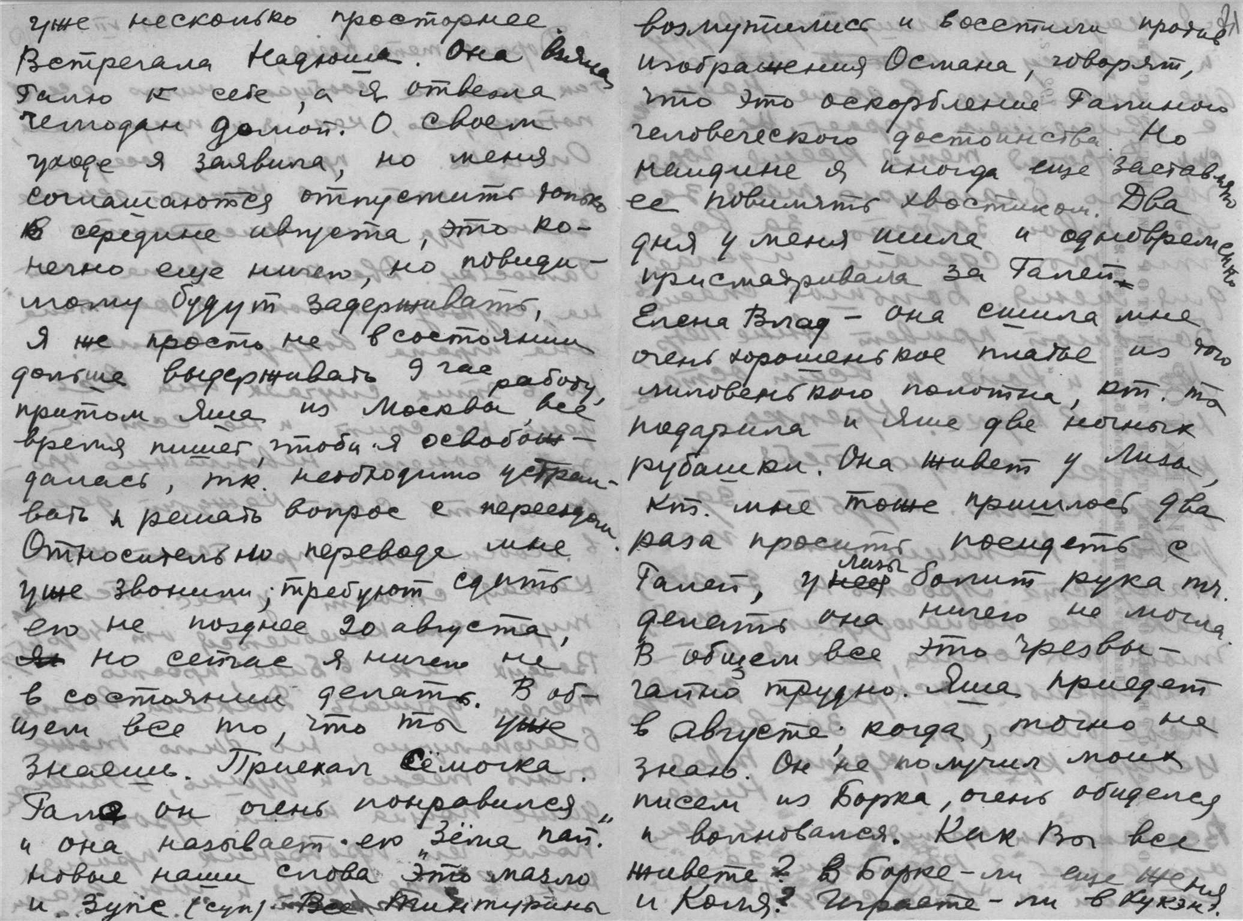 уже несколько просторнее
Встречала Надюша. Она взяла
Галю к себе, а я отвезла
чемодан домой. О своем
уходе я заявила, но меня
соглашаются отпустить только
в середине августа, это ко-
нечно еще ничего, но повиди-
мому будут задерживать,
я же просто не в состоянии
дольше выдерживать 9 час работу,
притом Яша из Москвы все
время пишет, чтобы я освобож-
далась, т.к. необходимо устраи-
вать и решать вопрос с переездом.
Относительно перевода мне
уже звонили; требуют сдать
его не позднее 20 августа,
но сейчас я ничего не
в состоянии делать. В об-
щем все то, что ты уже
знаешь. Приехал Сёмочка.
Гале он очень понравился
и она называет его „Зёма пай."
новые наши слова это мачло
и Зупс (суп) Все Тинтурины
возмутились и восстали против
изображения Османа, говорят,
что это оскорбление Галиного
человеческого достоинства. Но
наедине я иногда еще заставляю
ее повилять хвостиком. Два
дня у меня шила и одновременно
присматривала за Галей
Елена Влад – она сшила мне
очень хорошенькое платье из того
лиловенького полотна, кт. ты
подарила и Яше две ночных
рубашки. Она живет у Лизы,
кт. мне тоже пришлось два
раза просить посидеть с
Галей, у Лизы болит рука тч.
делать она ничего не могла.
В общем все это чрезвы-
чайно трудно. Яша приедет
в августе, когда, точно не
знаю. Он не получил моих
писем из Борка, очень обиделся
и волновался. Как Вы все
живете? В Борке-ли еще Женя
и Коля? Играете-ли в Кукэн?